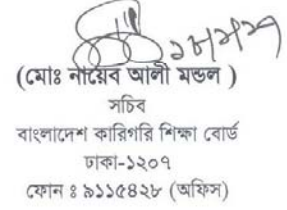 (মোঃ নায়েব আলী মন্ডল )
সচিব
বাংলাদেশ কারিগরি শিক্ষা বোর্ড
ঢাকা-১২০৭
ফোন ঃ ৯১১৫৪২৮ (অফিস)